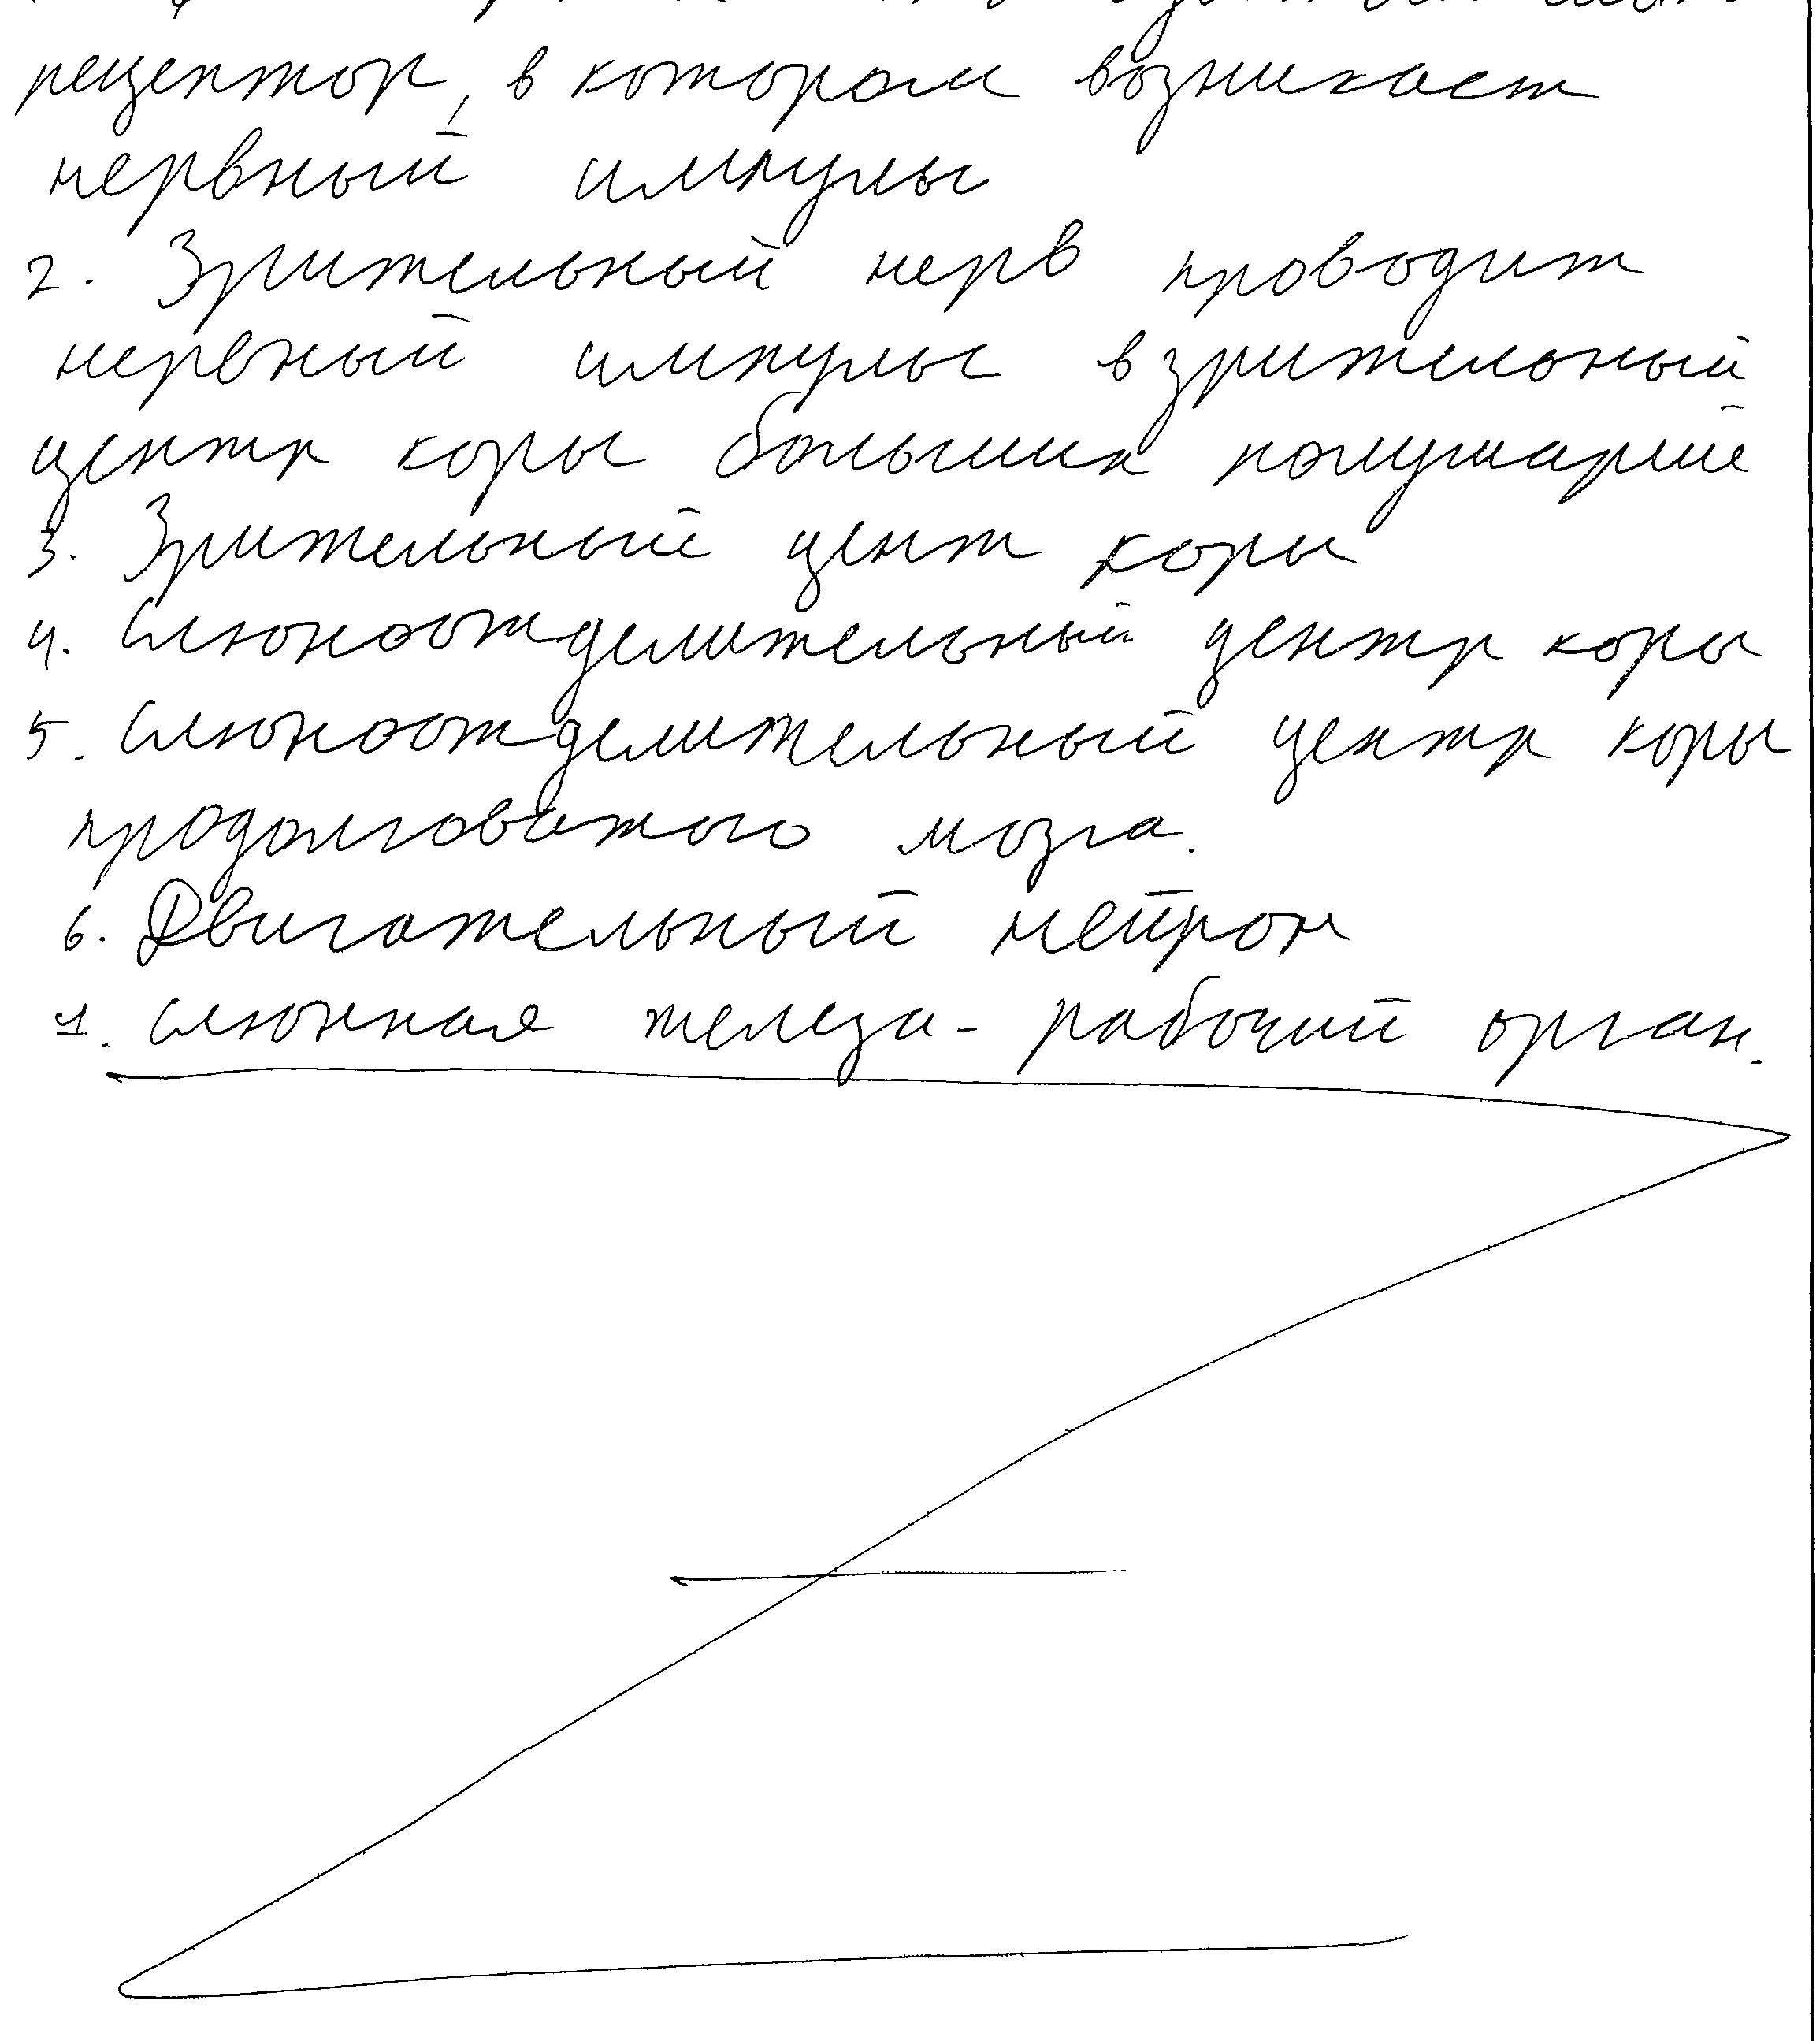 рецептор, в котором возникает
нервный импульс
2. Зрительный нерв проводит
нервный импульс в зрительный
центр коры больших полушарий
3. Зрительный цент коры
4. Слюноотделительный центр коры
5. Слюноотделительный центр коры
продолговатого мозга.
6. Двигательный нейрон
7. слюнная железа - рабочий орган.